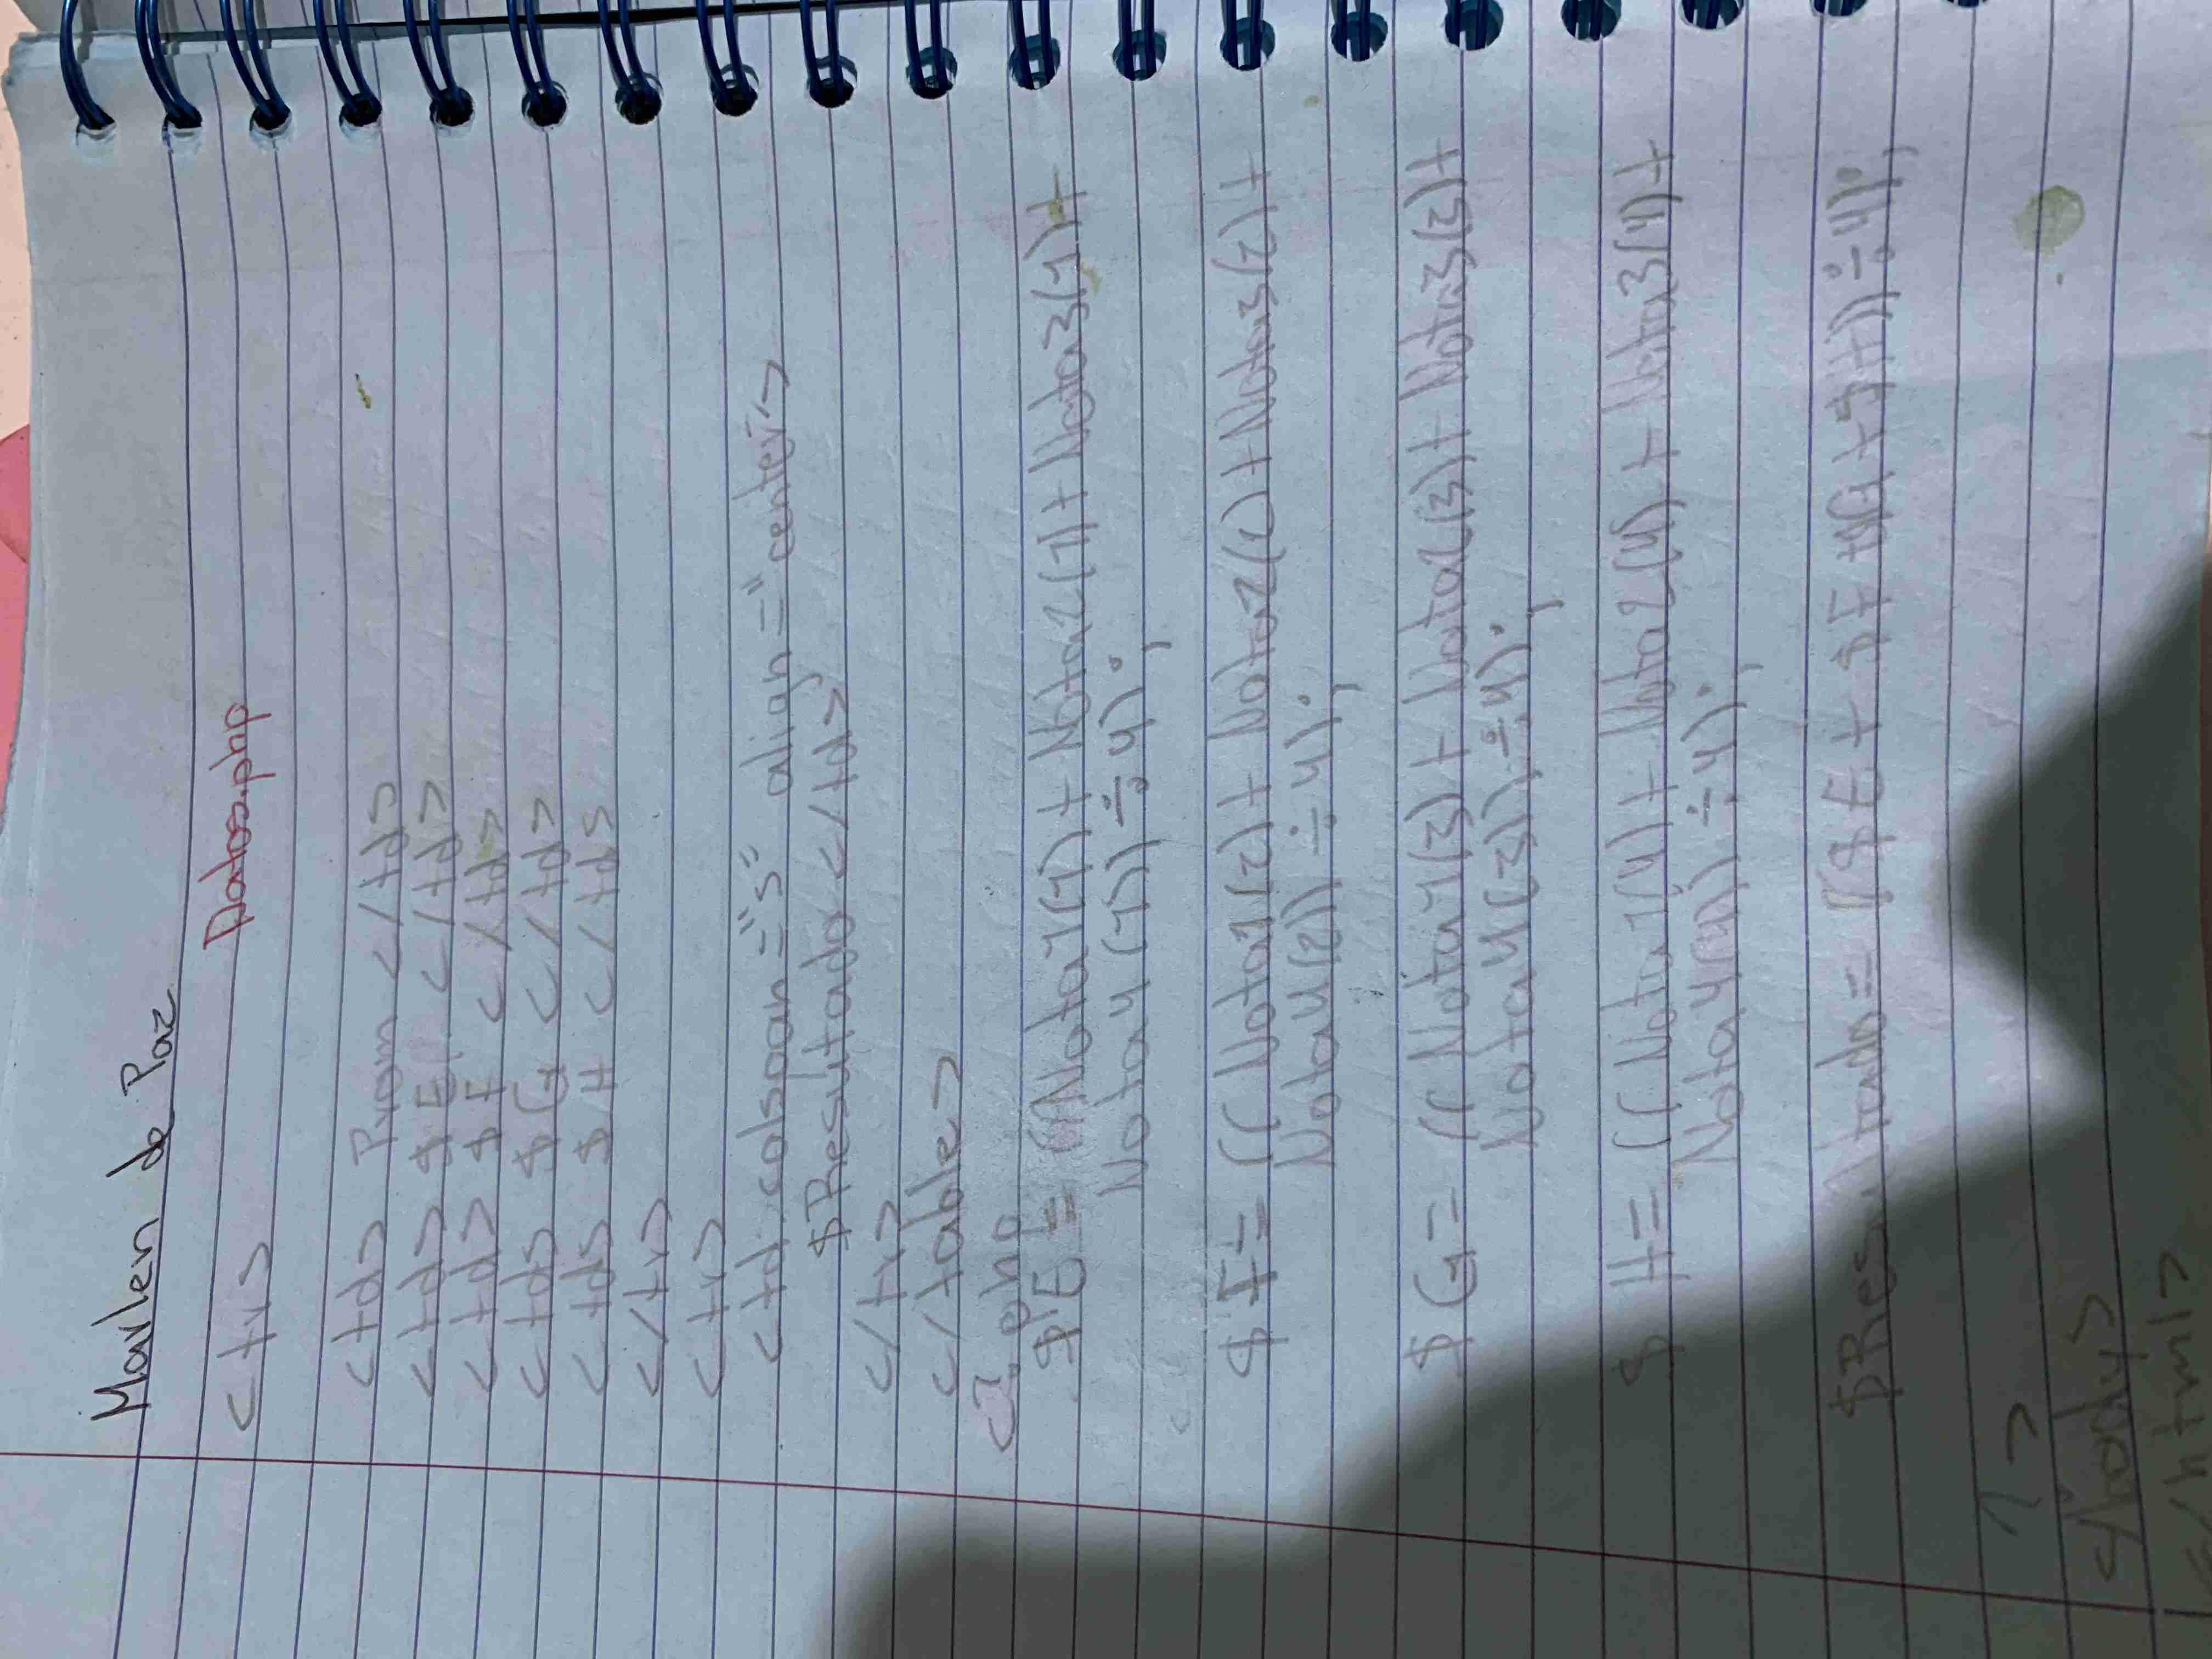 Marlen de Paz
Datos.php
<tr>
<td> Prom </td>
<td> $E </td>
<td> $F </td>
<td> $G </td>
<td> $H </td>
</tr>
<tr>
<td colspan="5" align="center">
$Resultado </td>
</tr>
</table>
<?php
$E = ((Nota1(1) + Nota2(1) + Nota3(1) +
Nota4(1)) ÷ 4);
$F = ((Nota1(2) + Nota2(2) + Nota3(2) +
Nota4(2)) ÷ 4);
$G = ((Nota1(3) + Nota2(3) + Nota3(3) +
Nota4(3)) ÷ 4);
$H = ((Nota1(4) + Nota2(4) + Nota3(4) +
Nota4(4)) ÷ 4);
$Resultado = (($E + $F + $G + $H)) ÷ 4);
?>
</body>
</html>